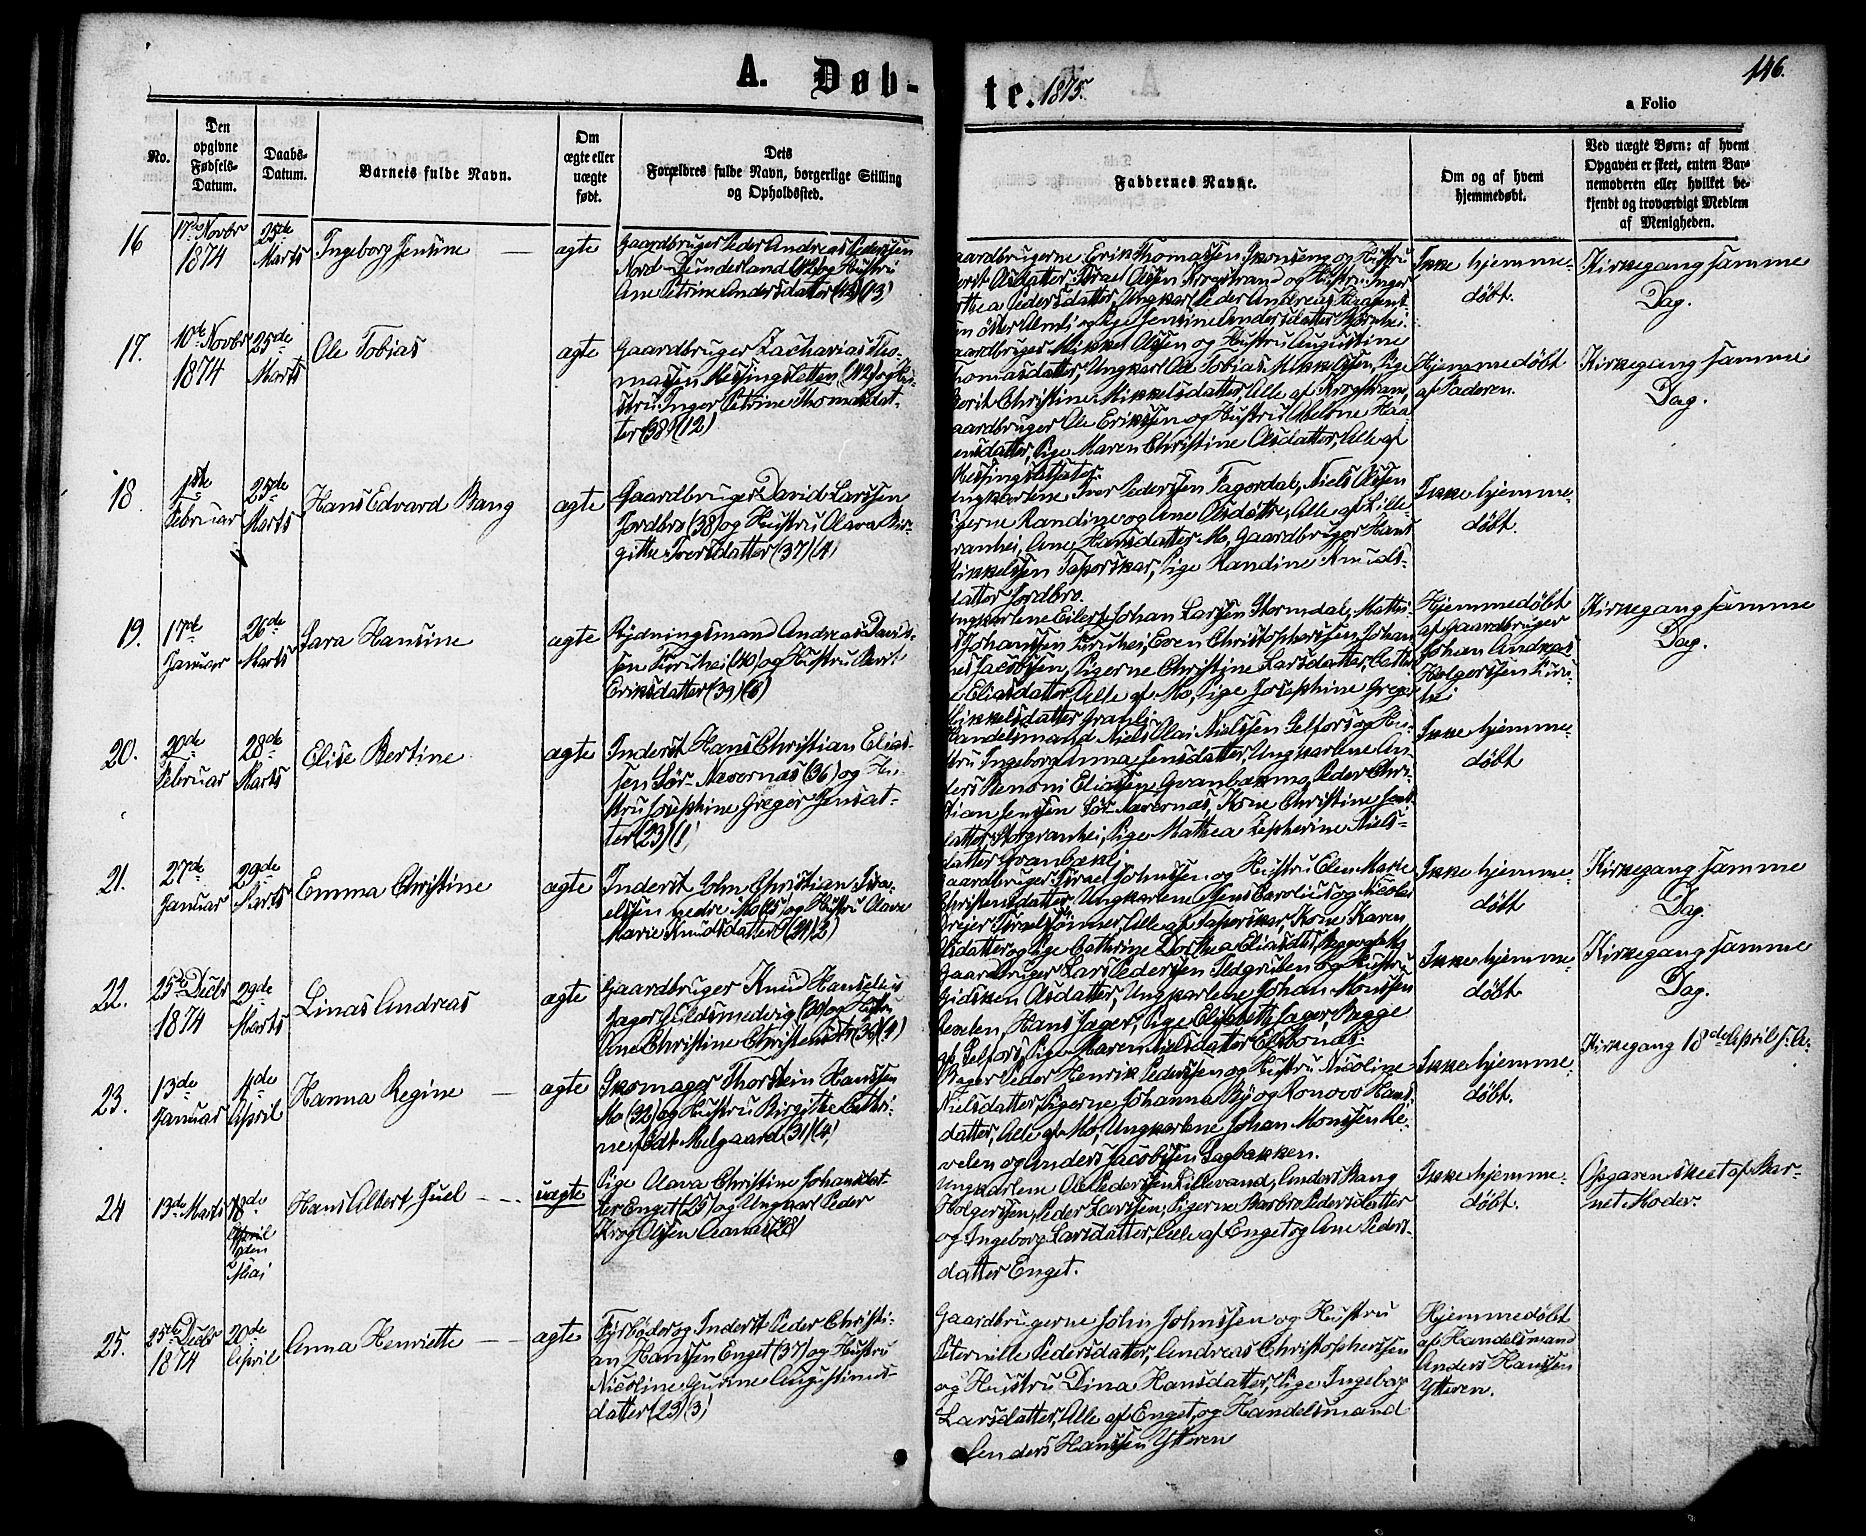 A. Døb-
te. 1875.
146.
a Folio
No.
Den
opgivne
Fødsels-
Datum.
Daabs-
Datum.
Barnets fulde Navn.
Om
ægte eller
uægte
født.
Dets
Forældres fulde Navn, borgerlige Stilling
og Opholdssted.
Faddernes Navne.
Om og af hvem
hjemmedøbt.
Ved uægte Børn: af hvem
Opgaven er skeet, enten Bar-
nemoderen eller hvilket be-
kjendt og troværdigt Medlem
af Menigheden.
16
17de Novbr
1874
25de
Marts
Ingeborg Jensine
ægte
Gaardbruger Peder Andreas Pedersen
Nord-Dunderland (42) og Hustru
Ane Petrine Andersdatter (42) (13)
aardbrugerne Erik Thomassen Skonseng og Hustru
Berit Olsdatter, Israel Olsen Krogstrand og Hustru Inger
thea Pedersdatter, Ungkarl Peder Andreas
og Pige Jensine Andersdatter
Ikke hjemme-
døbt.
Kirkegang samme
Dag.
17.
10de Novbr
1874
25de
Marts
Ole Tobias
ægte
Gaardbruger Zacharias Tho-
massen Messingsletten (42) og Hu-
stru Inger Petrine Thomasdat-
ter (38) (12)
aardbruger Mikkel Olsen og Hustru Augustine
homasdatter, Ungkarl Ole Tobias Mikkelsen, Pige
Berit Christine Mikkelsdatter, Alle af Krogstrand,
aardbruger Ole Eriksen og Hustru
ensdatter, Pige Maren Christine Olsdatter, Alle af
Messingsletten.
Hjemmedøbt
af Faderen.
Kirkegang samme
Dag.
18
1ste
Februar
25de
Marts
Hans Edvard Bang
ægte
Gaardbruger David Larssen
Jordbro (38) og Hustru Olava Bir-
gitte Iversdatter (37) (4)
ngkarlene Iver Pederssen Fagerdal, Niels Olssen
Pigerne Randine og Ane Olsdøttre, Alle af Lille-
granhei, Ane Hansdatter Mo, Gaardbruger Hans
Mikkelssen Taporskar, Pige Randine Knuds-
datter Jordbro.
Ikke hjemme-
døbt.
19.
17de
Januar
26de
Marts
Sara Hansine
ægte
Rydningsmand Andreas David-
sen Furuhei (40) og Hustru Berit
Eriksdatter (39) (6)
ngkarlene Eilert Johan Larssen Stormdal, Mathi-
s Johanssen Furuhei, Even Christophersen, Johan
nes Jacobssen, Pigerne Christine Larsdatter,
e Eliasdatter, Alle af Mo, Pige Josephine Greger
Mikkelsdatter Granlie
Hjemmedøbt
af Gaardbruger
Johan Andreas
Holgerssen Furu-
hei
Kirkegang samme
Dag.
20.
20de
Februar
28de
Marts
Elise Bertine
ægte
Inderst Hans Christian Elias-
sen Sør-Navernæs (36) og Hu-
stru Josephine Greger Jensdat-
ter (23) (1)
Handelsmand Niels Olai Nielssen Selfors og Hu-
stru Ingeborg Anna Jensdatter, Ungkarlene An-
ders Benoni Eliassen Granbækmo, Peder Chri-
stian Jenssen Sør Navernæs, Kone Christine Jens-
datter Storgranhei, Pige Mathea Zepherine Niels-
datter Granbæk
Ikke hjemme-
døbt
21.
27de
Januar
29de
Marts
Emma Christine
ægte
Inderst John Christian Isra-
elssen nedre Mo (25) og Hustru Olava
Marie Knudsdatter (21) (2)
Gaardbruger Israel Johnssen og Hustru Elen Marte
Christensdatter, Ungkarlene Jens Carolius og Nicolai
Drejer Israelssønner, Alle af Taporskar, Kone Karen
Olsdatter og Pige Cathrine Dorthea Eliasdtr, Begge af Mo
Ikke hjemme-
døbt
Kirkegang samme
Dag.
22.
25de Decbr
1874
29de
Marts
Linas Andreas
ægte
Gaardbruger Knud Hanselius
Jager (32) og Hustru
Ane Christine Christensdtr (36) (4)
Gaardbruger Lars Pederssen Ildgruben og Hustru
Gidsken Olsdatter, Ungkarlene Johan Monssen
Revelen, Hans Jager, Pige Elisabeth Jager Begge
af Selfors, Pige Maren Nielsdatter
Ikke hjemme-
døbt.
Kirkegang samme
Dag.
23.
13de
Januar
4de
April
Hanna Regine
ægte
Skomager Thorstein Hanssen
Mo (32) og Hustru Birgitte Cathri-
ne født Melgaard (31) (4)
Bager Peder Henrik Pederssen og Hustru Nicoline
Nielsdatter, Pigerne Johanna Bij og Ronovo Hans-
datter, Alle af Mo, Ungkarlene Johan Monssen Re-
velen og Anders Jacobssen Sagbakken.
Ikke hjemme-
døbt.
Kirkegang 18de April s. A.
24
13de Marts
18de
April
9den
Mai
Hans Albert Juel
uægte
Pige Olava Christine Johansdat-
ter Enget (25) og Ungkarl Peder
Krog Olsen Aanæs (28)
Ungkarlene Ole Pederssen Lillevand, Anders Bang
Holgerssen, Peder Larssen, Pigerne Barbro Pedersdatter
og Ingeborg Larsdatter, Alle af Enget og Ane Peders-
datter Enget.
Ikke hjemme-
døbt.
Opgaven skeet af Bar-
nets Moder.
25.
25de Decbr
1874
20de
April
Anna Henriette
ægte
Fyrbøder og Inderst Peder Christi-
an Hanssen Enget (37) og Hustru
Nicoline Gurine Augustinus-
datter (23) (3)
Gaardbrugerne John Johnssen og Hustru
Peternille Pedersdatter, Andreas Christopherssen
og Hustru Dina Hansdatter, Pige Ingeborg
Larsdatter, Alle af Enget, og Handelsmand
Anders Hanssen Ytteren
Hjemmedøbt
af Handelsmand
Anders Hanssen
Ytteren.